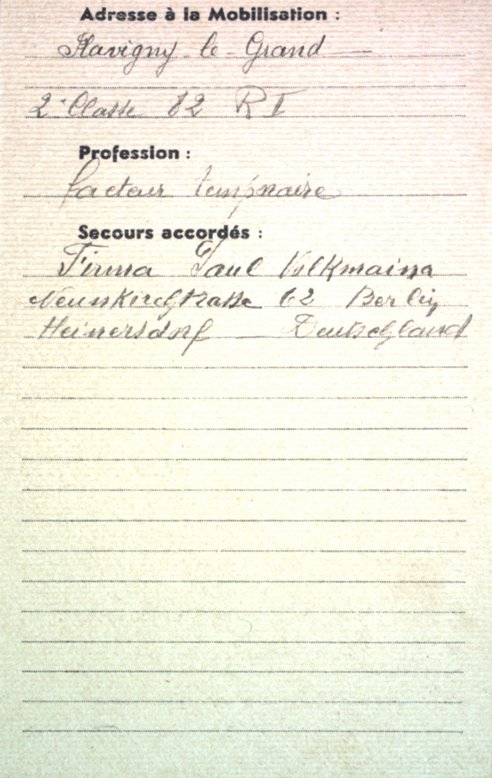 Adresse à la Mobilisation :
Flavigny le Grand
2e Classe 82 RI
Profession :
facteur
Secours accordés :
Firma Paul Volkmann
62 Berlin
Heinersdorf — Deutschland